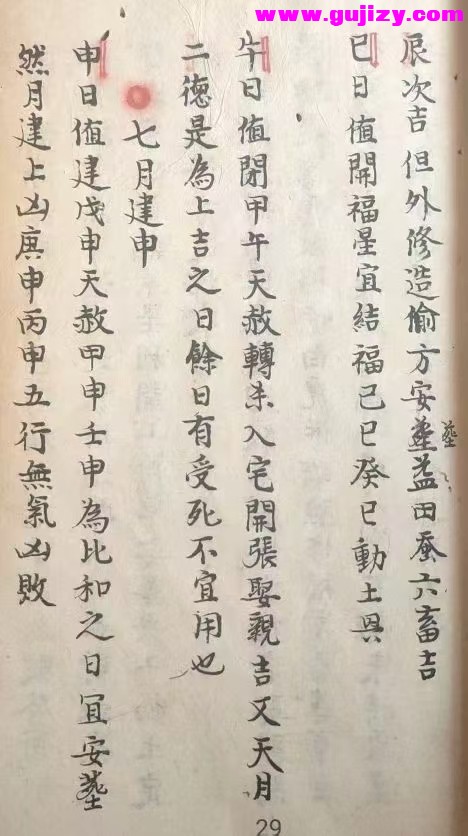 www.gujizy.com
辰次吉但外修造偷方安塟益田蚕六畜吉
塟
巳日值開福星宜結福己巳癸巳動土具
午日值閉甲午天赦轉未入宅開張娶親吉又天月
二德是為上吉之日餘日有受死不宜用也
七月建申
申日值建戊申天赦甲申壬申為比和之日宜安塟
然月建上凶庚申丙申五行無氣凶敗
29